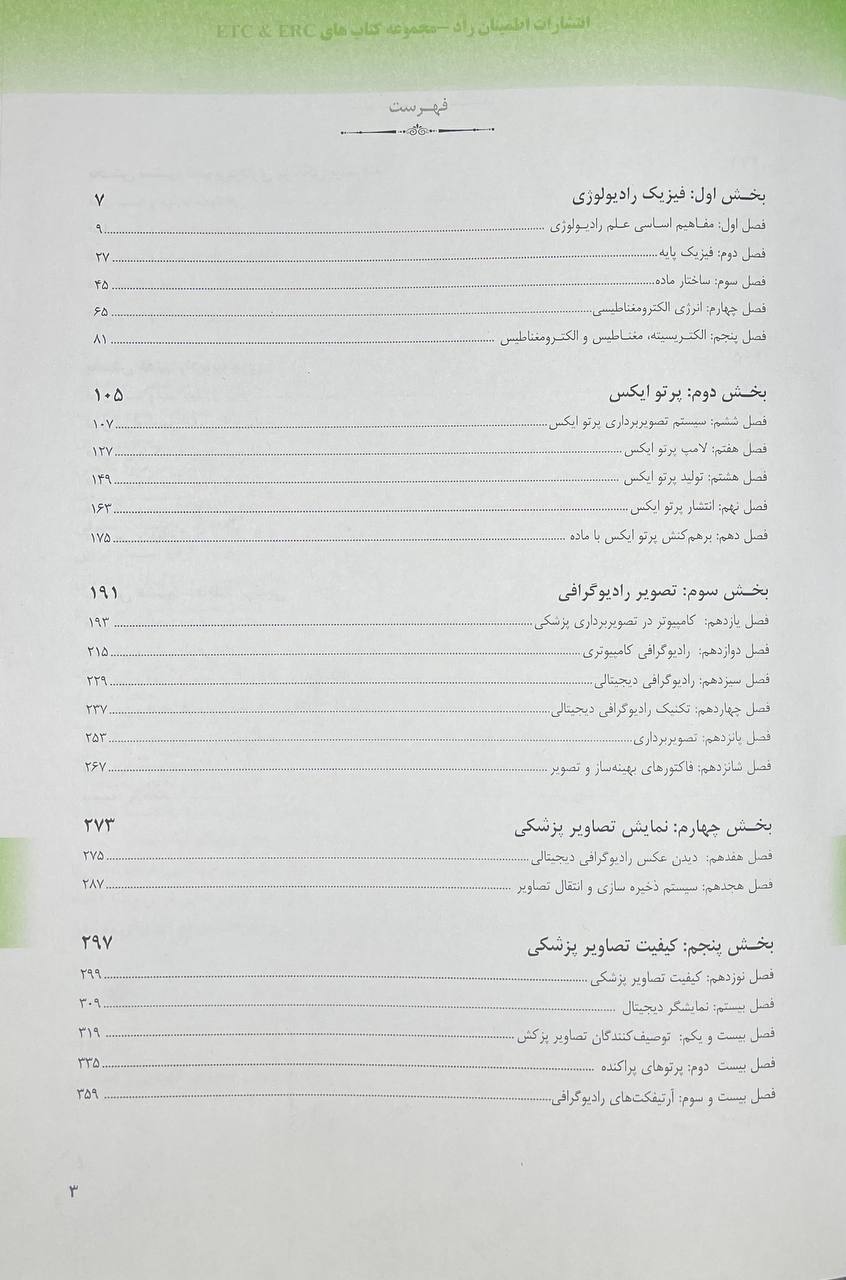 انتشارات اطمینان راد – مجموعه کتاب های ETC & ERC
فهـرست
بخـش اول: فیزیک رادیولوژی ۷
فصل اول: مفـاهیم اسـاسی عـلم رادیـولوژی ۹
فصل دوم: فیزیک پایه ۲۷
فصل سوم: ساختار ماده ۴۵
فصل چهارم: انرژی الکترومغناطیسی ۶۵
فصل پنجم: الکتـریسیته، مغنـاطیس و الکتـرومغناطیس ۸۱
بخـش دوم: پرتو ایکس ۱۰۵
فصل ششم: سیستم تصویربرداری پرتو ایکس ۱۰۷
فصل هفتم: لامپ پرتو ایکس ۱۲۷
فصل هشتم: تولید پرتو ایکس ۱۴۹
فصل نهم: انتشار پرتو ایکس ۱۶۳
فصل دهم: برهم‌کنش پرتو ایکس با ماده ۱۷۵
بخـش سوم: تصویر رادیوگرافی ۱۹۱
فصل یازدهم: کامپیوتر در تصویربرداری پزشکی ۱۹۳
فصل دوازدهم: رادیوگرافی کامپیوتری ۲۱۵
فصل سیزدهم: رادیوگرافی دیجیتالی ۲۲۹
فصل چهاردهم: تکنیک رادیوگرافی دیجیتالی ۲۳۷
فصل پانزدهم: تصویربرداری ۲۵۳
فصل شانزدهم: فاکتورهای بهینه‌ساز و تصویر ۲۶۷
بخـش چهارم: نمایش تصاویر پزشکی ۲۷۳
فصل هفدهم: دیدن عکس رادیوگرافی دیجیتالی ۲۷۵
فصل هجدهم: سیستم ذخیره سازی و انتقال تصاویر ۲۸۷
بخـش پنجم: کیفیت تصاویر پزشکی ۲۹۷
فصل نوزدهم: کیفیت تصاویر پزشکی ۲۹۹
فصل بیستم: نمایشگر دیجیتال ۳۰۹
فصل بیست و یکم: توصیف‌کنندگان تصاویر پزکش ۳۱۹
فصل بیست دوم: پرتوهای پراکنده ۳۳۵
فصل بیست و سوم: آرتیفکت‌های رادیوگرافی ۳۵۹
۳